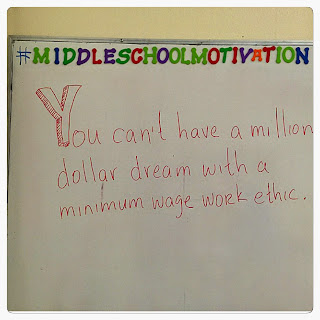 #MIDDLESCHOOLMOTIVATION
You can't have a million
dollar dream with a
minimum wage work ethic.